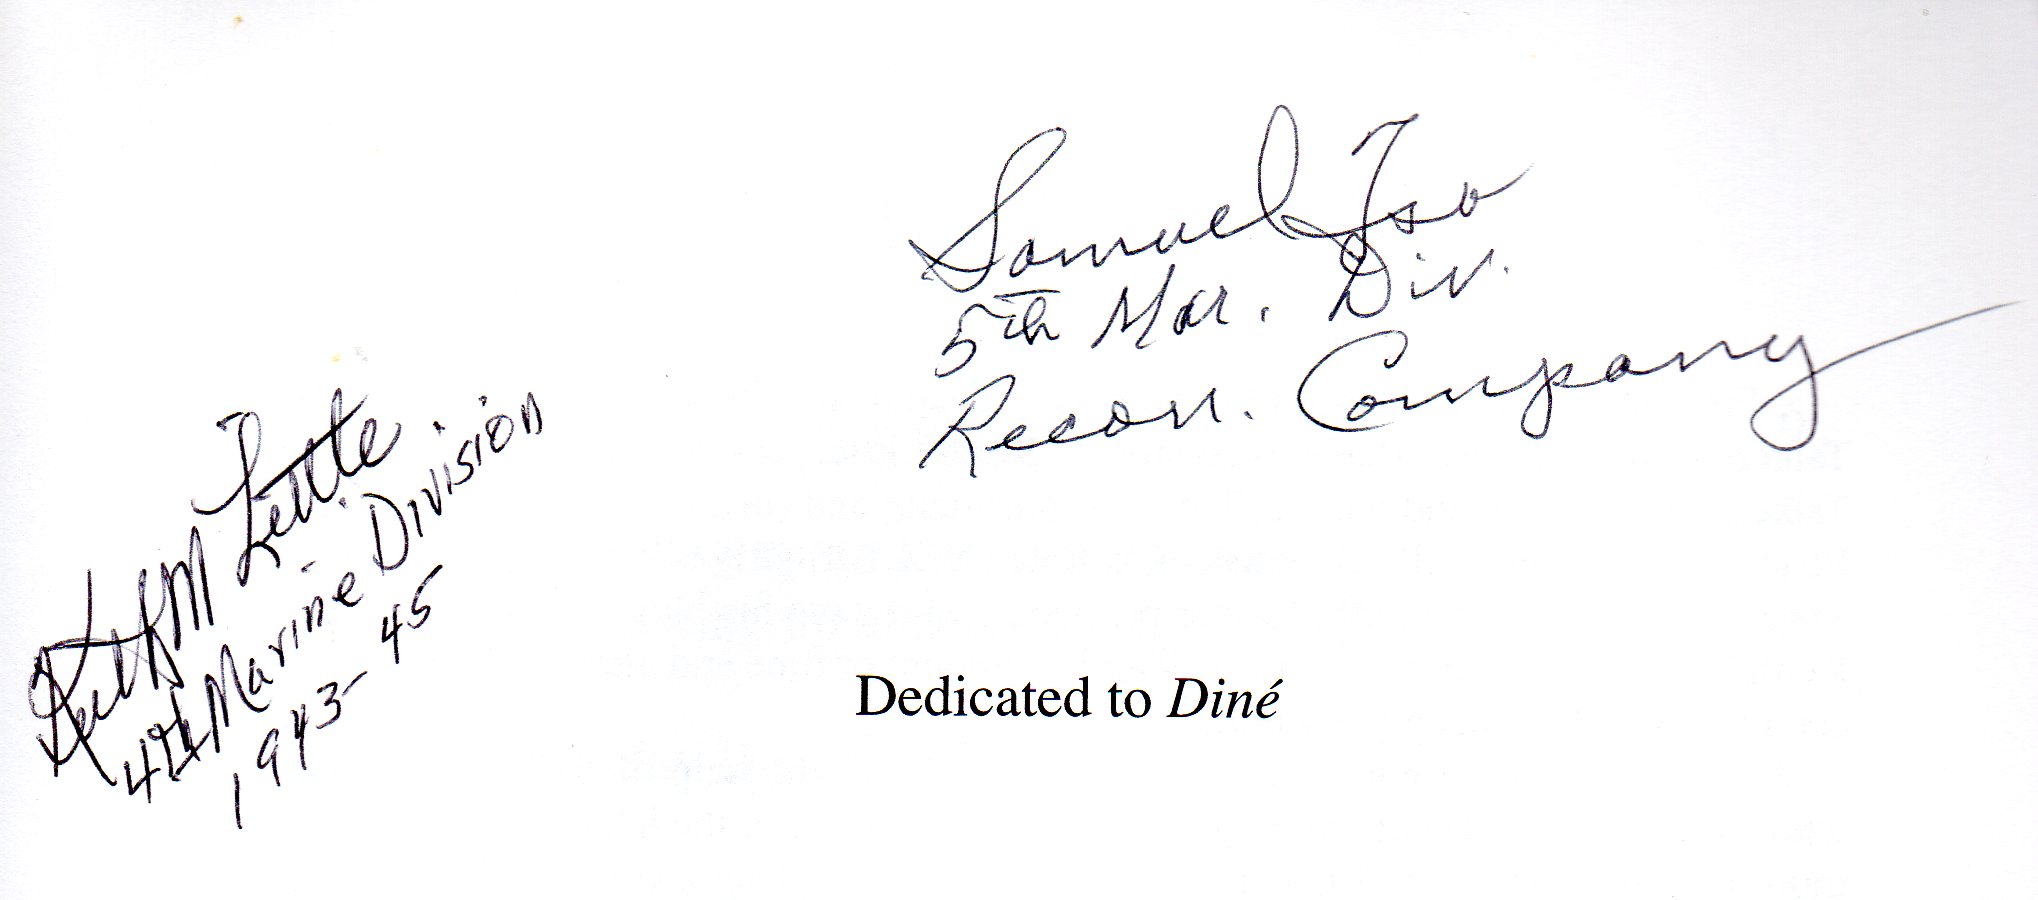 Samuel Tso
5th Mar. Div.
Recon. Company
Keith M Little
4th Marine Division
1943-45
Dedicated to Diné